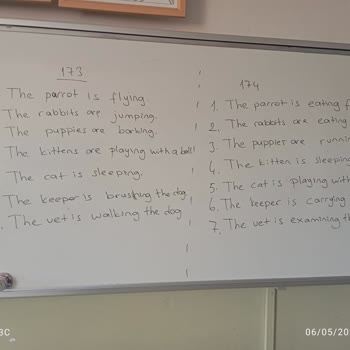 173
The parrot is flying.
The rabbits are jumping.
The puppies are barking.
The kittens are playing with a ball
The cat is sleeping.
The keeper is brushing the dog
The vet is walking the dog
174
1. The parrot is eating
2. The rabbits are eating
3. The puppies are
4. The kitten is sleeping
5. The cat is playing with
6. The keeper is carrying
7. The vet is examining
3C
06/05/